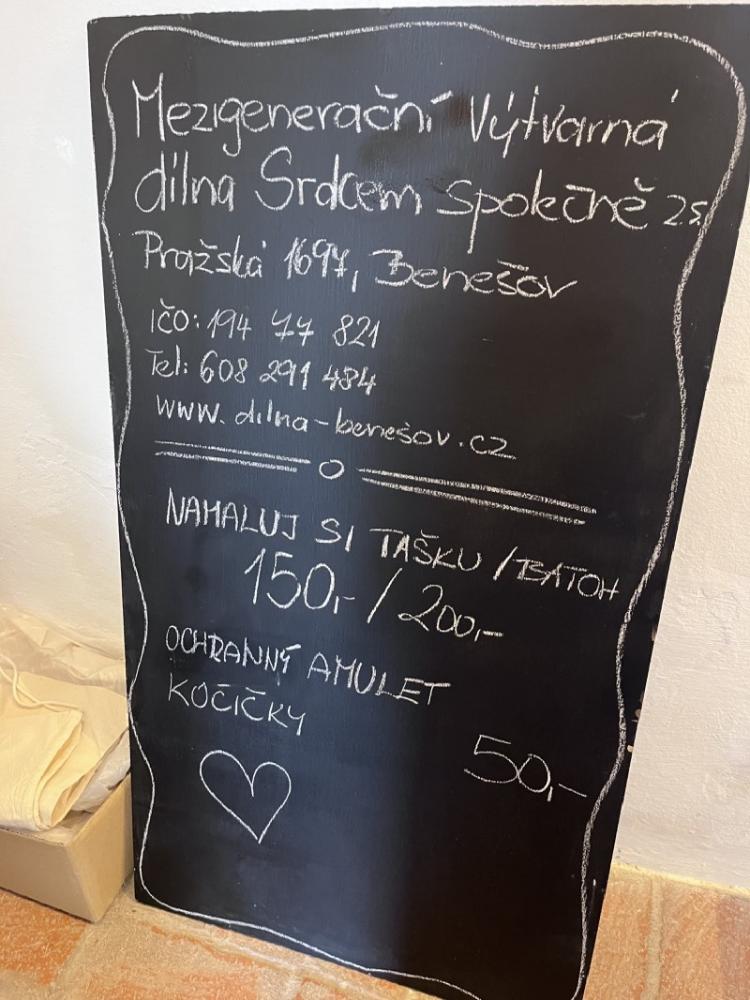 Mezigenerační Výtvarná
dílna Srdcem společně z.s.
Pražská 1697, Benešov
IČO: 194 77 821
Tel: 608 291 484
www.dilna-benesov.cz
NAMALUJ SI TAŠKU / BATOH
150,- / 200,-
OCHRANNÝ AMULET
KOČIČKY
50,-